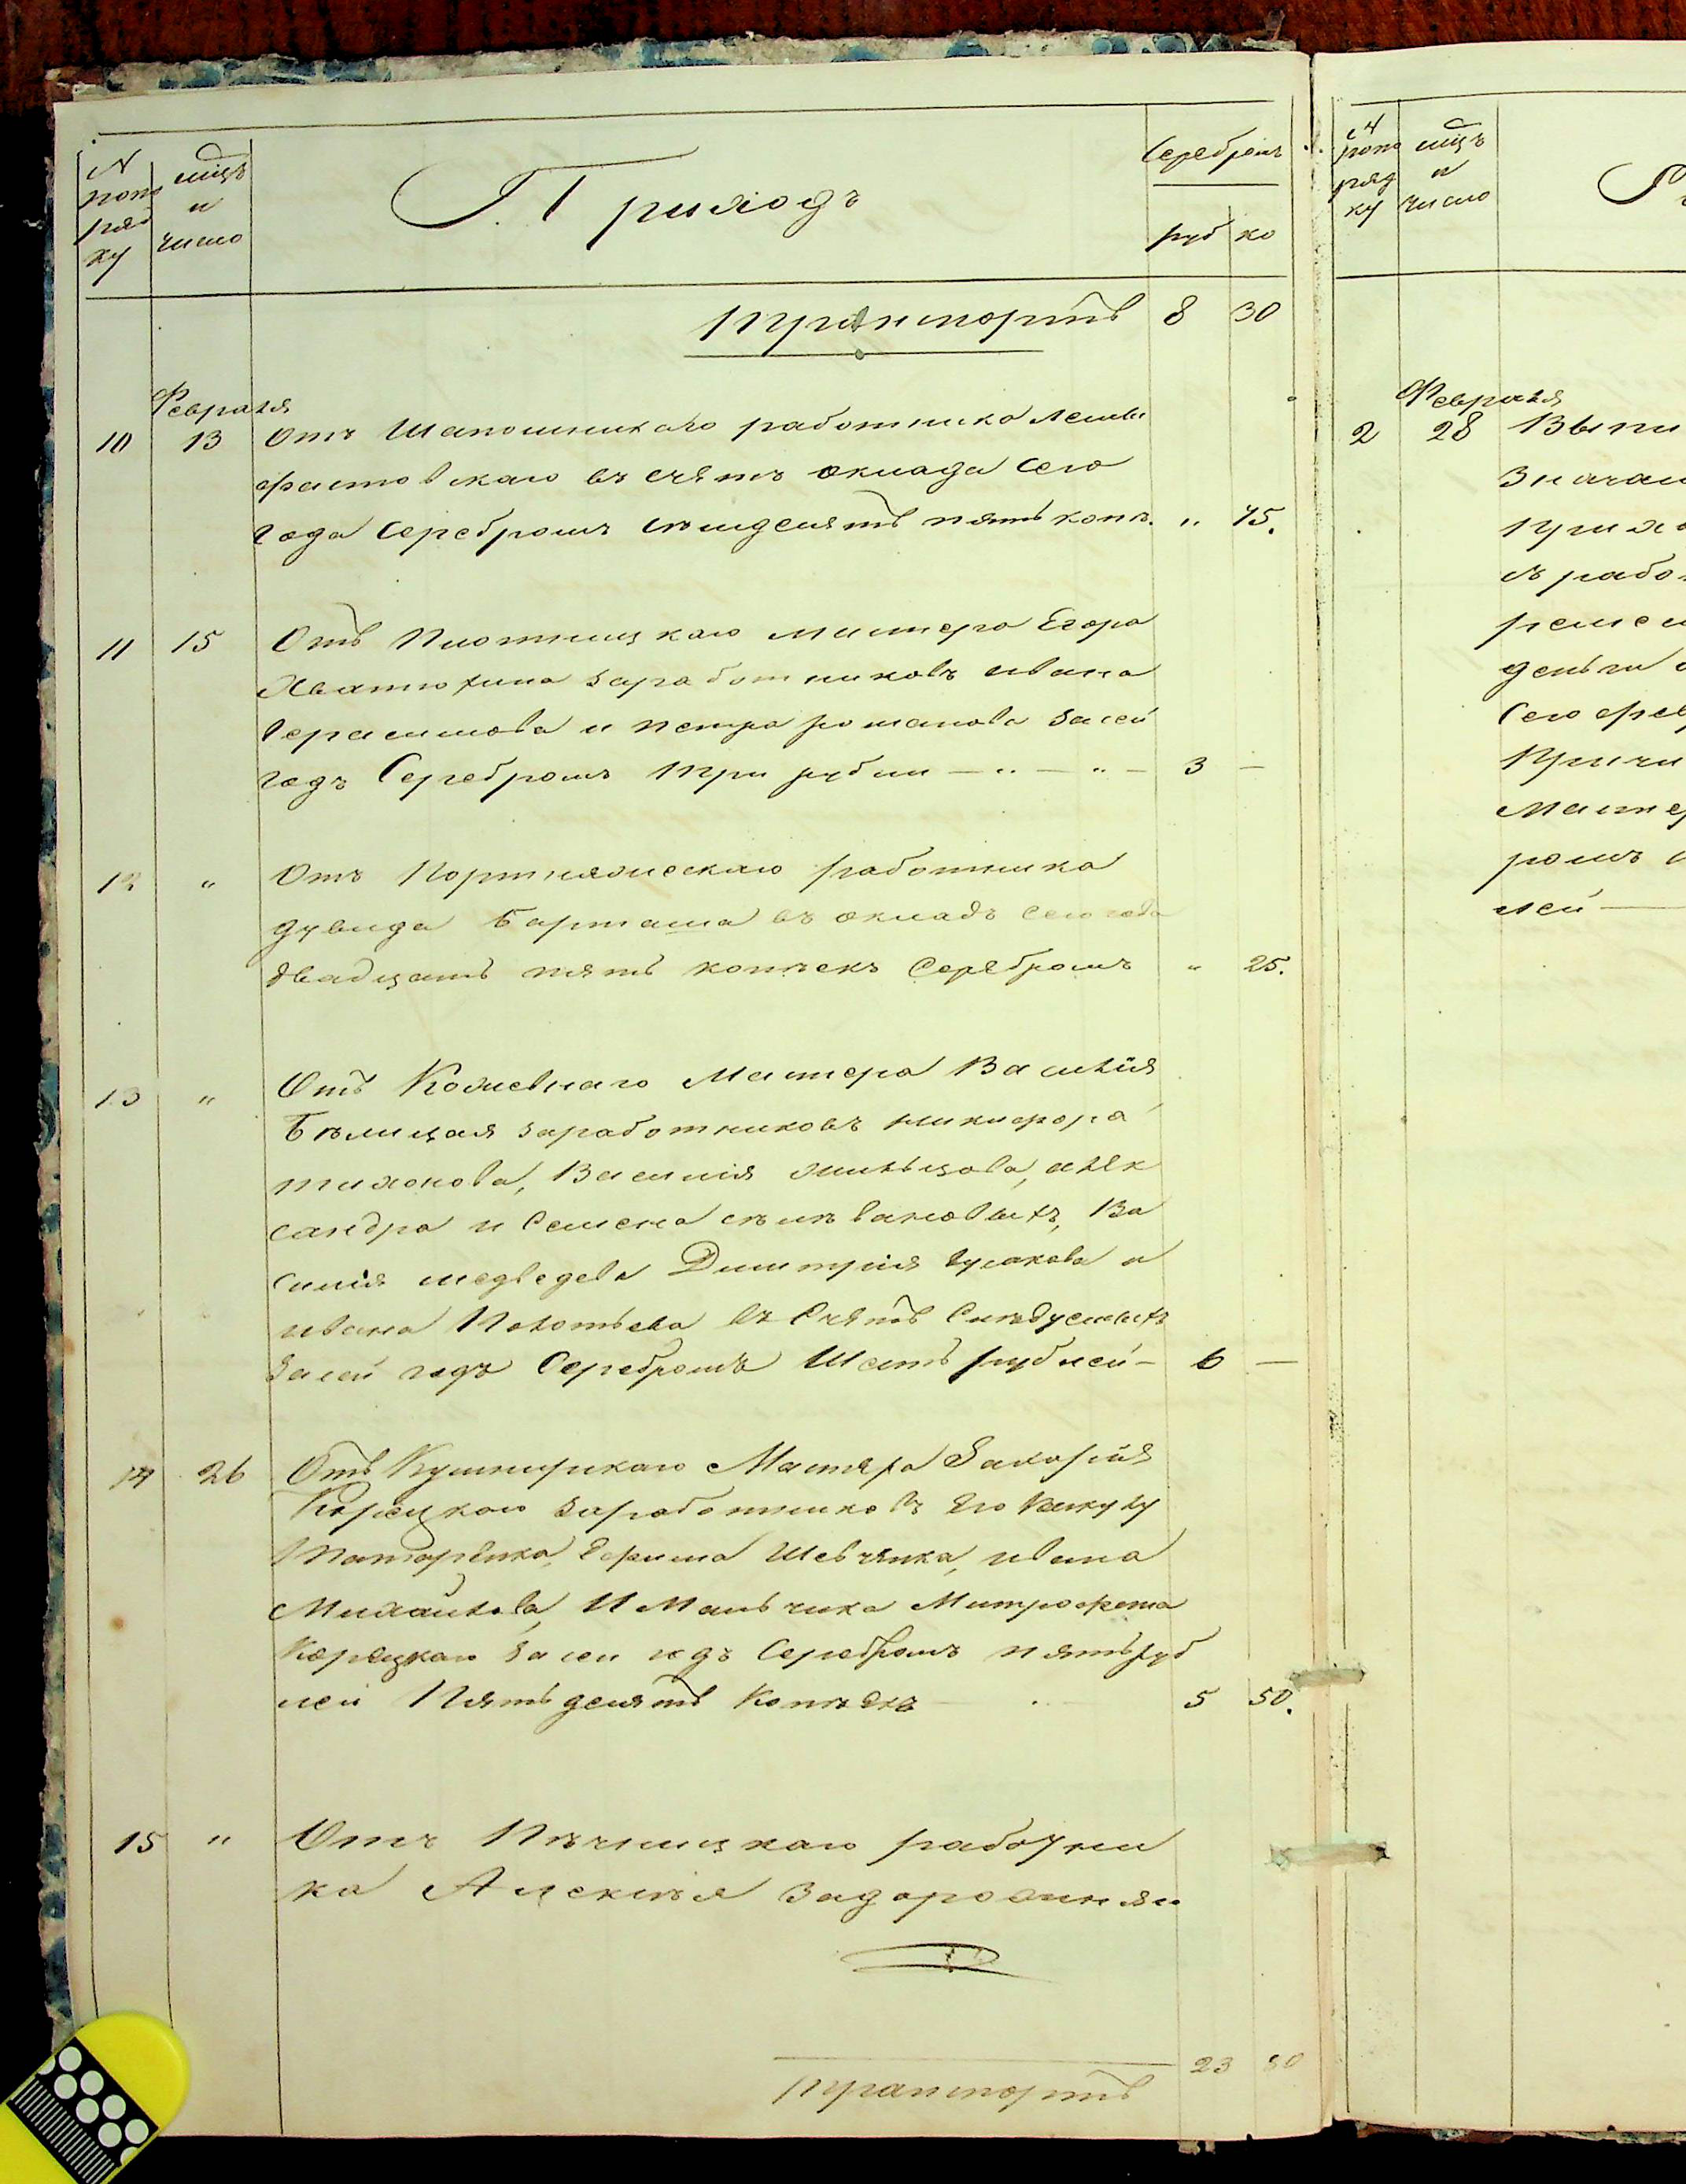 N
попо
ряд
ку
мцъ
и
число
Приходъ
Серебромъ
руб ко
транспортъ 8 30
Февраля
10 13 Отъ Шапошницкаго работника
въ счетъ оклада сего
года серебромъ семдесятъ пять коп. " 75.
11 15 Отъ Плотницкаго мастера Егора
Хватюхина заработниковъ ивана
герасимова и петра романова засей
годъ Серебромъ три рубли — " — " — 3 —
12 " Отъ Портняжескаго работника
дувида Барташа въ окладъ сего года
двадцать пять копѣекъ Серебромъ " 25.
13 " Отъ Кожевнаго Мастера Василія
Бѣлицая заработниковъ никифора
тихонова, Василія алек
сандра и Семена Ва
силія медведева Димитрія гусакова и
ивана въ Счетъ Слѣдуемыхъ
засей годъ Серебромъ Шесть рублей — 6 —
14 26 Отъ Кушнирскаго Мастера Захарія
Корецкаго заработниковъ его
Татаренка, Ефима Шевченка, ивана
Михайлова, И Мальчика Митрофана
Корецкаго засей годъ Серебромъ пять руб
лей Пятьдесятъ Копѣекъ 5 50.
15 " Отъ Пѣчницкаго работни
ка Алексѣя Задорожняго
23 80
транспортъ
N
попо
ряд
ку
мцъ
и
число
Февраля
2 28 Выпи
Значал
прихо
съ рабо
ремес
деньги
Сего фев
Причи
Мастер
ромъ
лей —